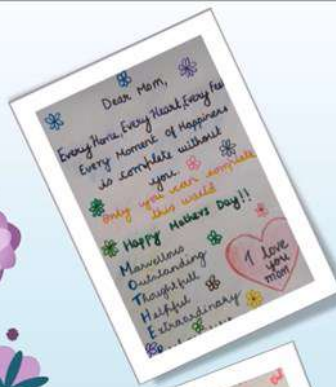 Dear Mom,
Every Home, Every Heart, Every Feel
Every Moment of Happiness
is complete without
you.
only you can complete
this world
Happy Mothers Day!!
Marvellous
Outstanding
Thoughtfull
Helpful
Extraordinary
I love
you
mom